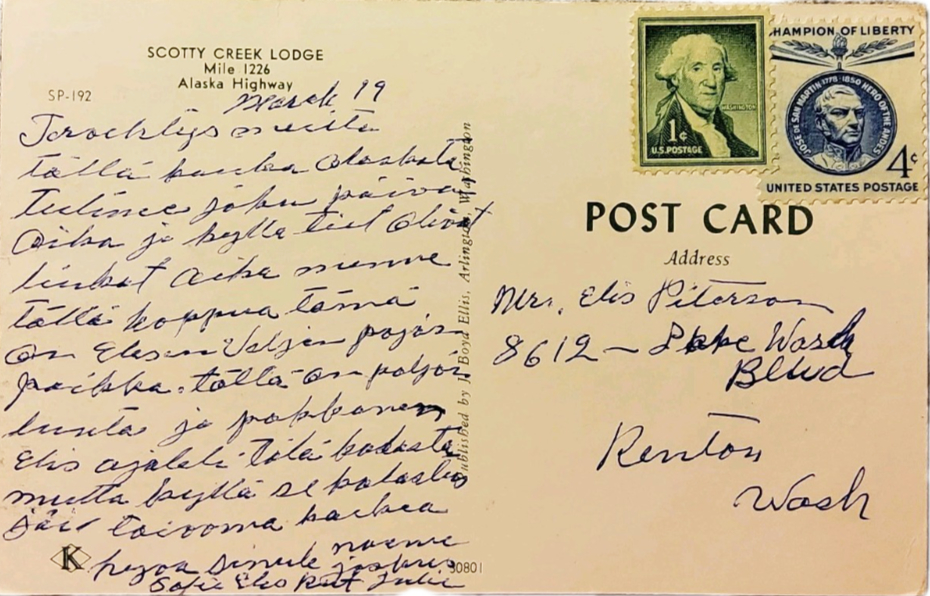 SCOTTY CREEK LODGE
Mile 1226
Alaska Highway
SP-192
March 19
muita
tällä kauka Alaskata
Tulime joku päivä
Aika ja kyllä tiet olivat
aika menne
tällä koppua tämä
On Elesen Veljen pojan
paikka. tällä on paljon
lunta ja pakkanen
Elis ajateli tälä kalasta
mutta kyllä se kalastus
jäi toivoma kaikea
hyvoa sinule
Sofie Elis
K
30801
Published by J. Boyd Ellis, Arlington, Washington
WASHINGTON
1¢
U.S. POSTAGE
CHAMPION OF LIBERTY
JOSE DE SAN MARTIN 1778-1850 HERO OF THE ANDES
4¢
UNITED STATES POSTAGE
POST CARD
Address
Mrs. Elis Piterson
8612 - Lake Wash
Blvd
Renton
Wash